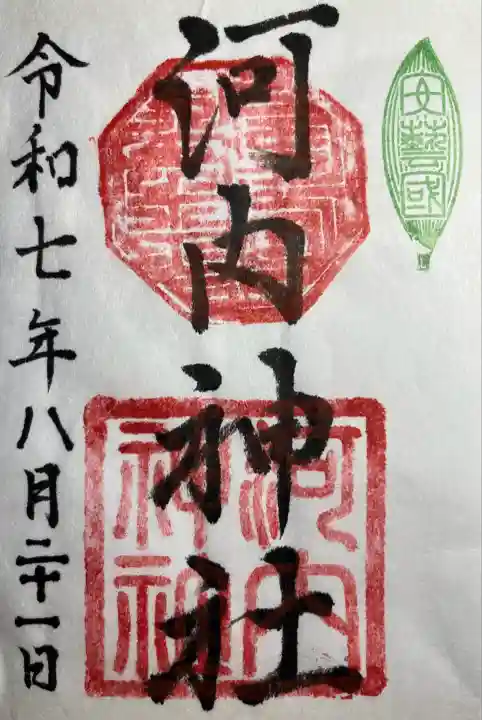 安藝國
河内神社
河内神社
令和七年八月二十一日